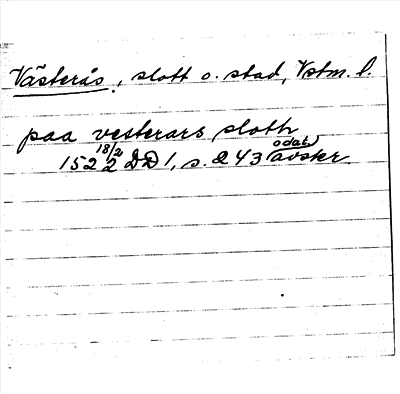 Västerås, slott o. stad, Vstm. l.
paa vesterars sloth
18/2 odat.
152 2 DD 1, s. 243 avskr.